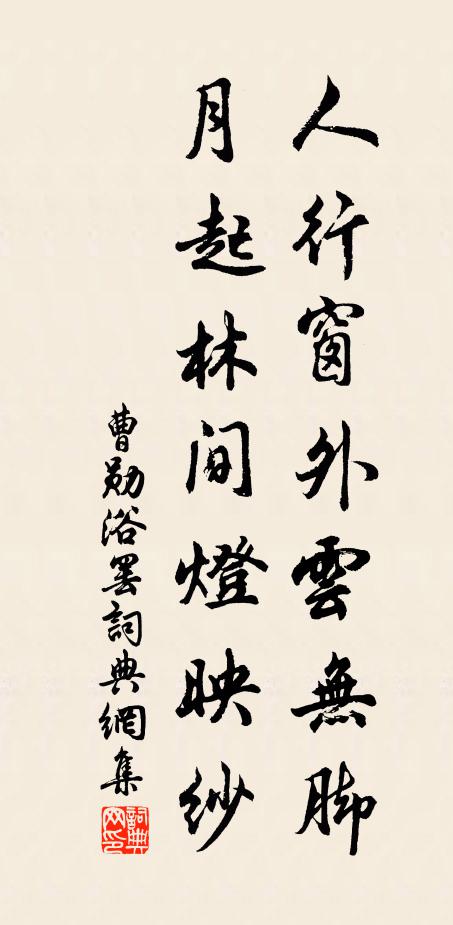 人行窗外雲無脚
月起林間燈映紗
曹勛浴罢詞典網集
詞典网印